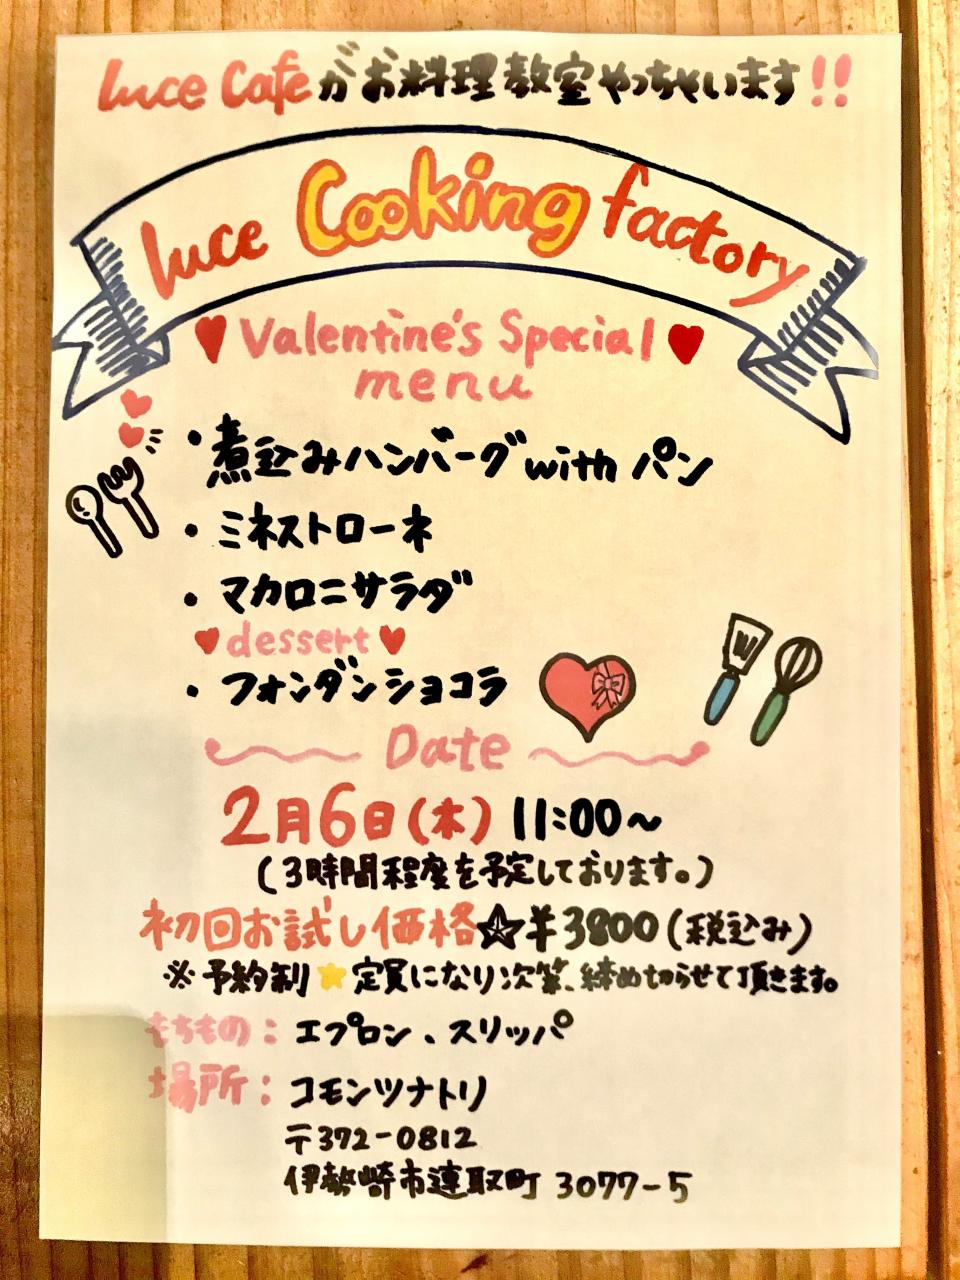 luce Cafeがお料理教室やっちゃいます!!
luce Cooking factory
Valentine's Special
menu
・煮込みハンバーグwith パン
・ミネストローネ
・マカロニサラダ
dessert
・フォンダンショコラ
Date
2月6日(木) 11:00〜
(3時間程度を予定しております。)
初回お試し価格☆¥3800(税込み)
※予約制★定員になり次第、締め切らせて頂きます。
もちもの:エプロン、スリッパ
場所:コモンツナトリ
〒372-0812
伊勢崎市連取町 3077-5